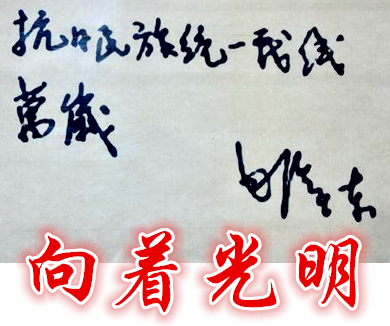 抗日民族统一战线
萬歲
毛泽东
向着光明